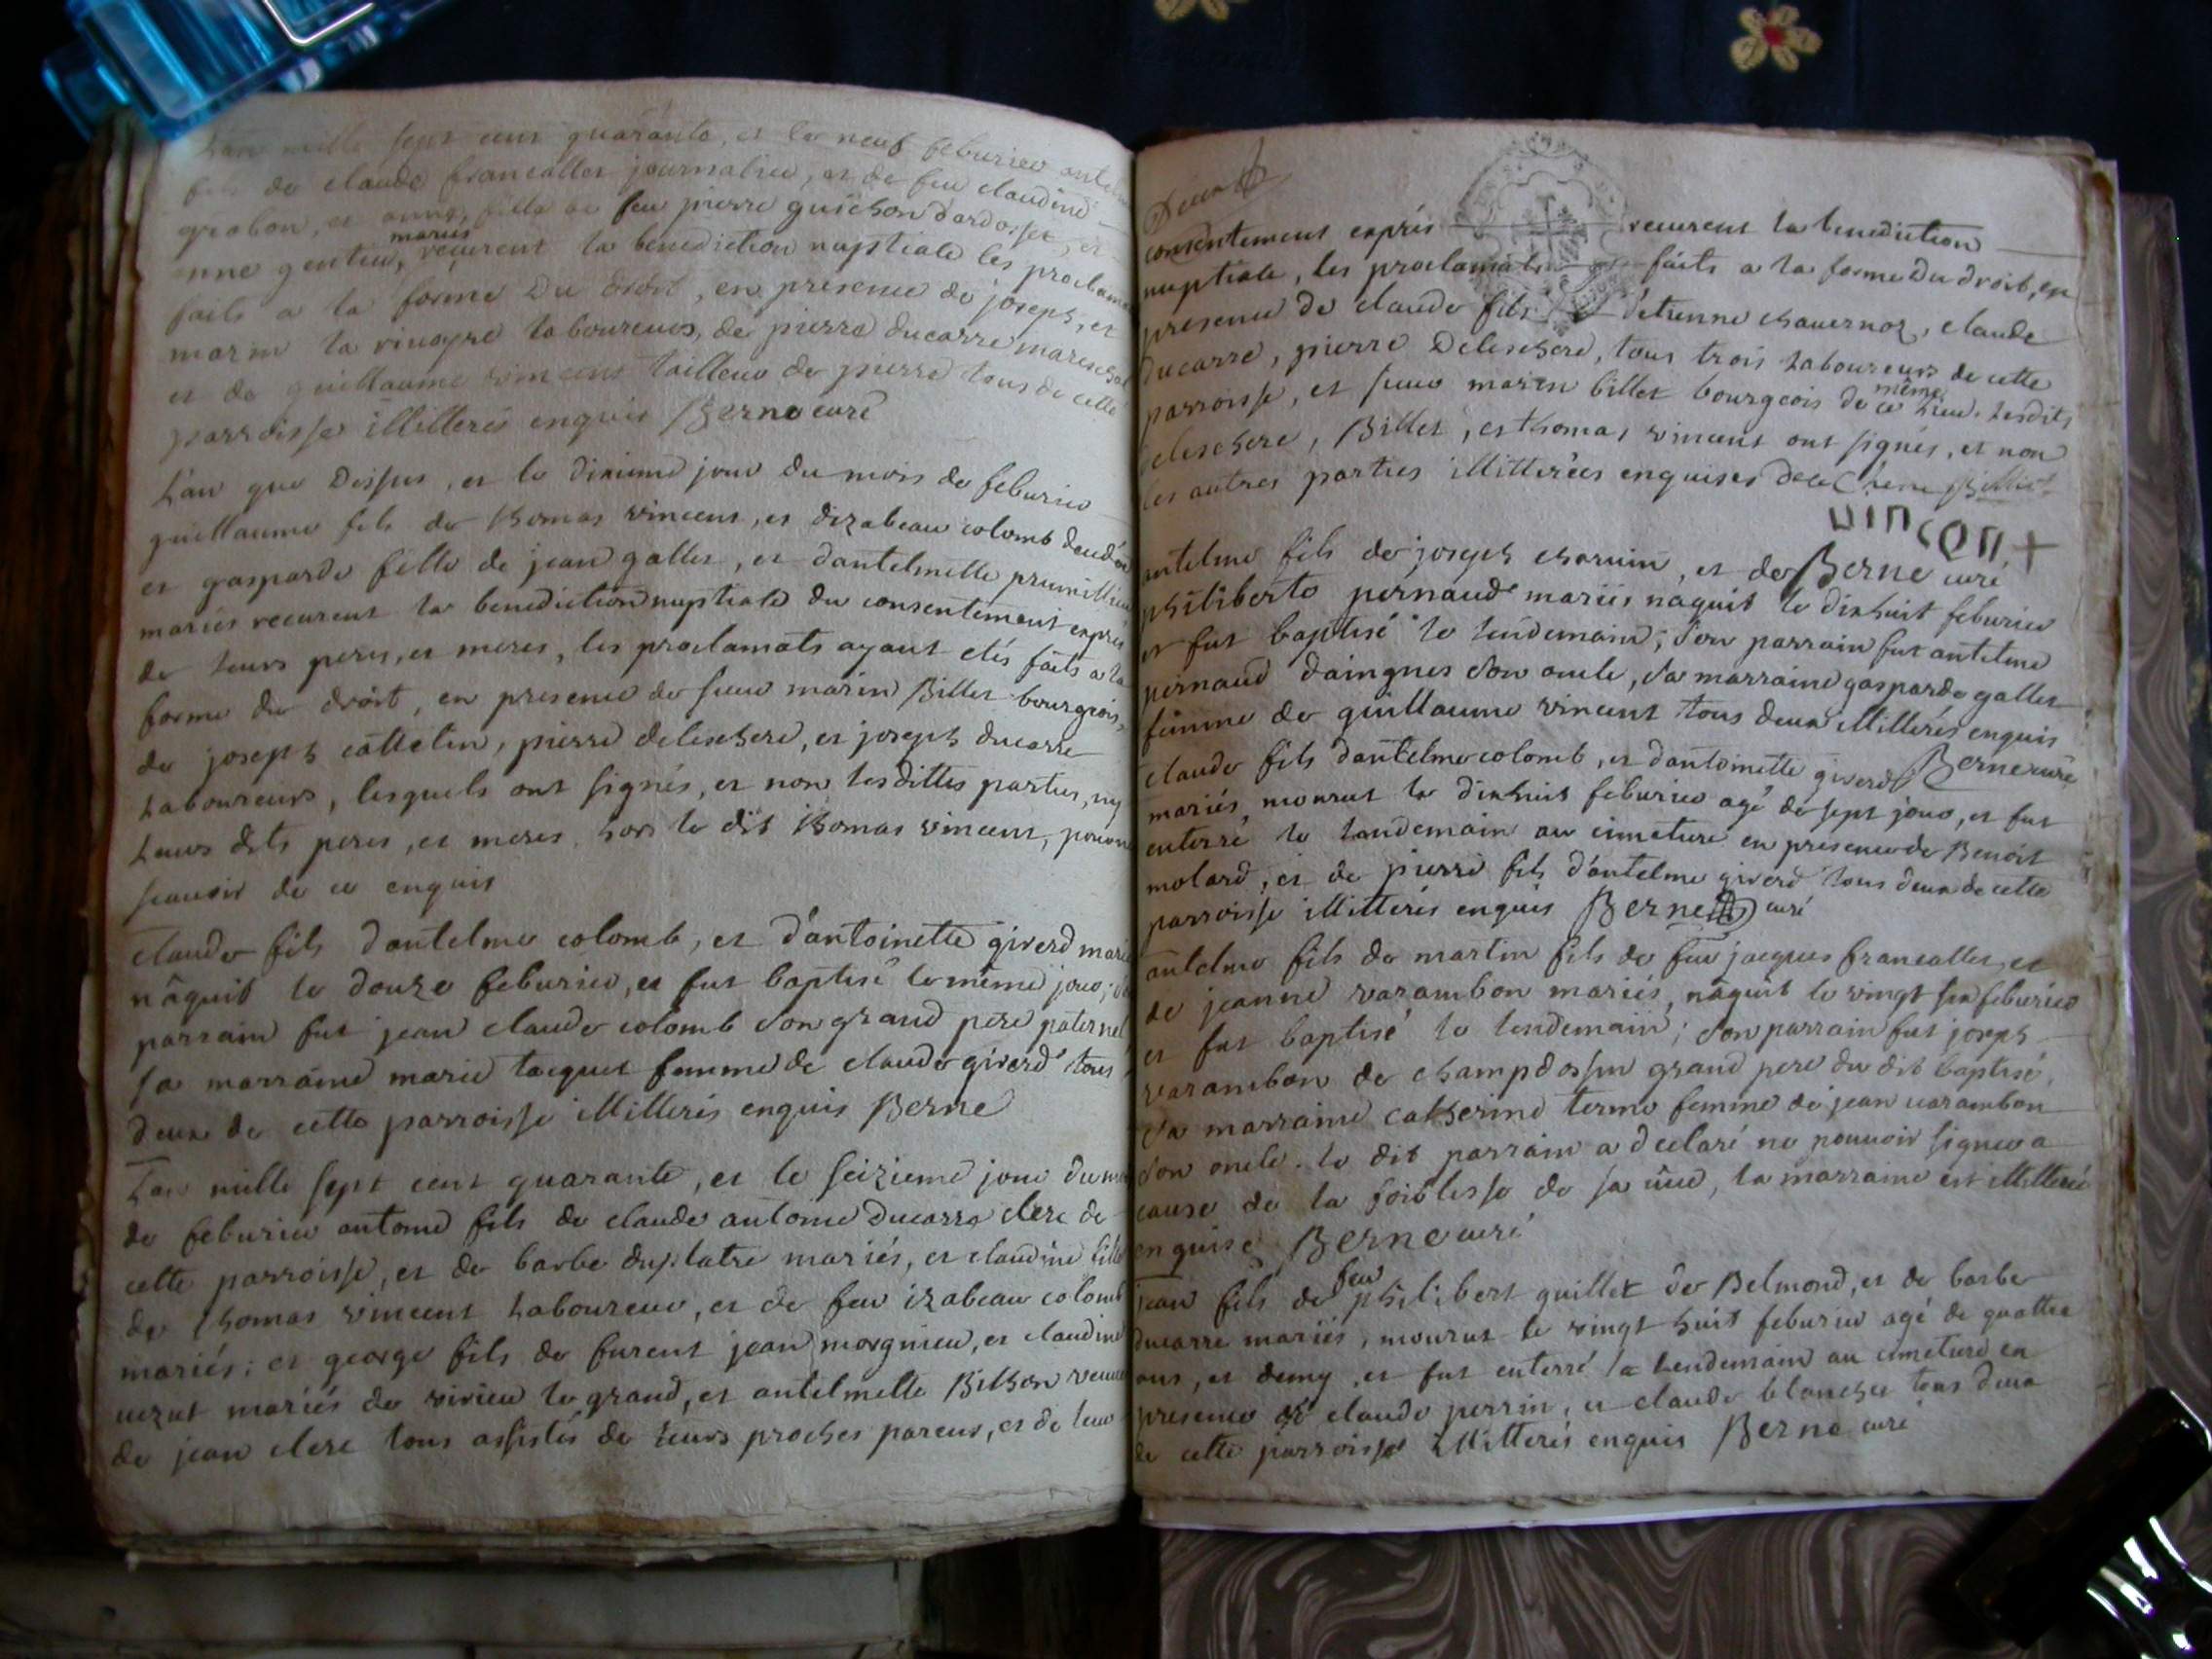 Lan mille sept cent quarante, et le neuf feburier
fils de claude francallet journalier, et de feu claudine
grobon, et anne, fille de feu pierre guichon dardosset, et
nne gentin, mariés recurent la benediction nuptiale les proclama
faits a la forme Du droit, en presence de joseph, et
marin la vinayre laboureurs, de pierre ducarre mareschal
et de guillaume vincent tailleur de pierre tous de cette
parroisse illitterés enquis Berne curé
L'an que Dessus, et le dixieme jour du mois de feburier
guillaume fils de thomas vincent, et dizabeau colomb
et gasparde fille de jean gallet, et dantelmette
mariés recurent la benediction nuptiale du consentement exprès
de leurs peres, et meres, les proclamats ayant etés faits a la
forme du droit, en presence de sieur marin Billet bourgeois,
de joseph cattelin, pierre deleschere, et joseph ducarre
Laboureurs, lesquels ont signés, et non lesdittes parties, ny
Leurs dits peres, et meres, hors le dit thomas vincent,
scauoir de ce enquis
claude fils dantelme colomb, et d'antoinette giverd
nâquit le douze feburier, et fut baptisé le même jour;
parrain fut jean claude colomb son grand pere paternel
sa marraine marie tacquet femme de claude giverd tous
deux de cette parroisse illitterés enquis Berne
Lan mille sept cent quarante, et le seizieme jour du
de feburier antoine fils de claude antoine ducarre clerc de
cette parroisse, et de barbe duplatre mariés, et claudine fille
de thomas vincent Laboureur, et de feu izabeau colomb
mariés; et george fils de furent jean morgnieu, et claudine
mariés de virieu le grand, et antelmette Bithon
de jean clerc tous assistés de leurs proches parens, et de leur
consentement exprés recurent la benediction
nuptiale, les proclamats faits a la forme du droit, en
presence de claude fils d'etienne chauernoz, claude
ducarre, pierre Deleschere, tous trois Laboureurs de cette
parroisse, et sieur marin billet bourgeois de ce même Lieu. Lesdits
deleschere, Billet, et thomas vincent ont signés, et non
les autres parties illitterées enquises Billiet
vincent
antelme fils de joseph charuin, et de Berne curé
philiberte pernaud mariés naquit le dixhuit feburier
et fut baptisé le lendemain; son parrain fut antelme
pernaud daingnes son oncle, sa marraine gasparde gallet
femme de guillaume vincent tous deux illitterés enquis
Berne curé
claude fils dantelme colomb, et dantoinette giverd
mariés, mourut le dixhuit feburier agé de sept jours, et fut
enterré le landemain au cimetiere en presence de Benoit
molard, et de pierre fils d'antelme giverd tous deux de cette
parroisse illitterés enquis Berne curé
antelme fils de martin fils de feu jacques francallet, et
de jeanne varambon mariés, nâquit le vingt six feburier
et fut baptisé le lendemain; son parrain fut joseph
varambon de champdossin grand pere du dit baptisé,
sa marraine catherine terme femme de jean varambon
son oncle. le dit parrain a declaré ne pouuoir signer a
cause de la foiblesse de sa vüe, la marraine est illitterée
enquise Berne curé
jean fils de feu philibert guillet de Belmond, et de barbe
ducarre mariés, mourut le vingt huit feburier agé de quattre
ans, et demy, et fut enterré le Lendemain au cimetiere en
presence de claude perrin, et claude blanchet tous deux
de cette parroisse illitterés enquis Berne curé